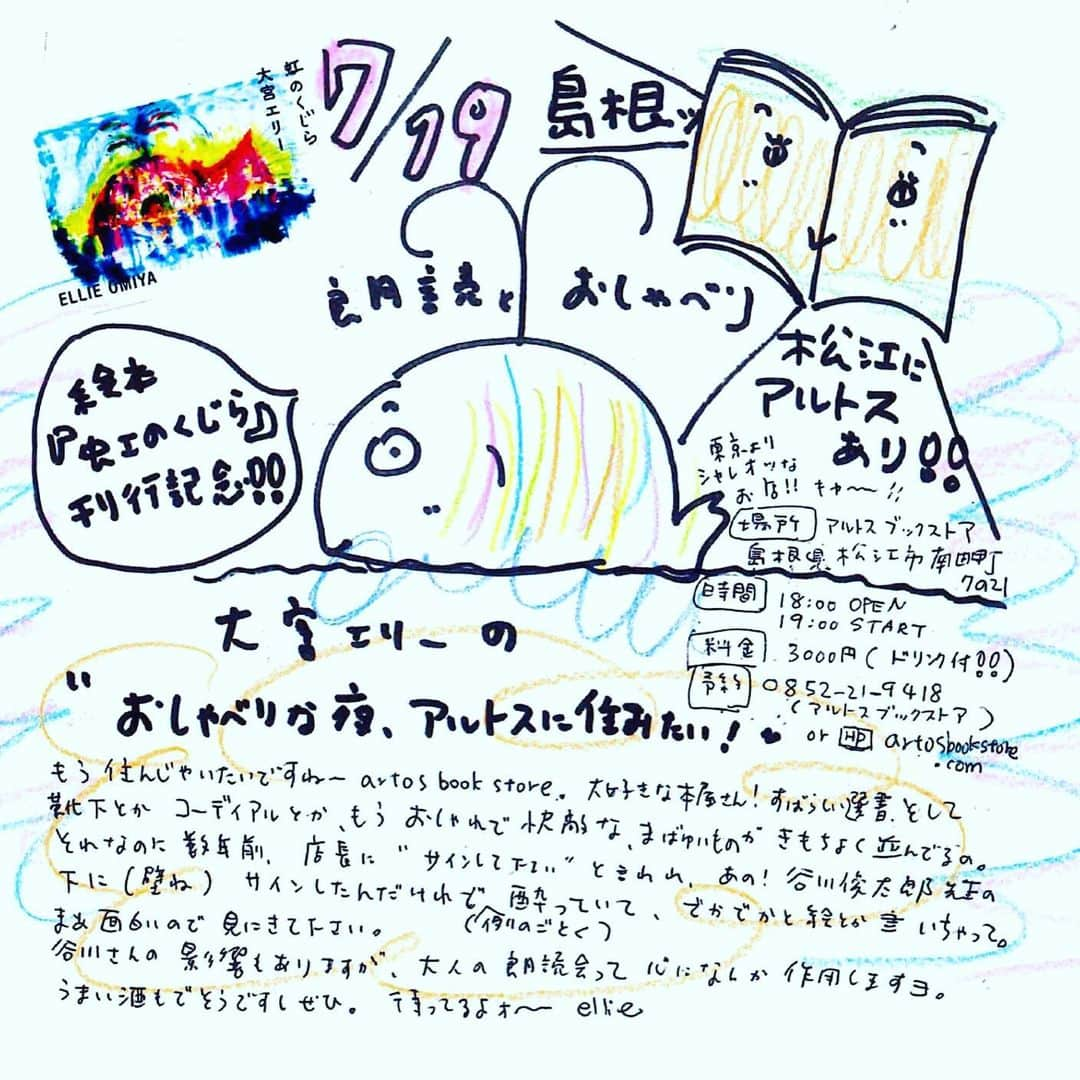 虹のくじら
大宮エリー
ELLIE OMIYA
7/19
島根ッ
朗読と おしゃべり
絵本
『虹のくじら』
刊行記念!!
松江に
アルトス
あり!!
東京より
シャレオツな
お店!! キャ〜!!
場所 アルトスブックストア
島根県松江市南田町
7の21
時間 18:00 OPEN
19:00 START
料金 3000円(ドリンク付!!)
予約 0852-21-9418
(アルトスブックストア)
or HP artosbookstore
.com
大宮エリーの
"おしゃべりな夜、アルトスに住みたい!
もう住んじゃいたいですね〜 artos book store。大好きな本屋さん!すばらしい選書、そして
靴下とか コーディアルとか、もう おしゃれで快適な、まばゆいものが きもちよく並んでるの。
それなのに 数年前、店長に "サインして下さい" と言われ、あの!谷川俊太郎先生の
下に(壁ね) サインしたんだけれど、酔っていて、でかでかと絵とか書いちゃって。
(例のごとく)
まあ面白いので見にきて下さい。
谷川さんの影響もありますが、大人の朗読会って心になんか作用しますヨ。
うまい酒もどうですしぜひ。 待ってるよォ〜 ellie